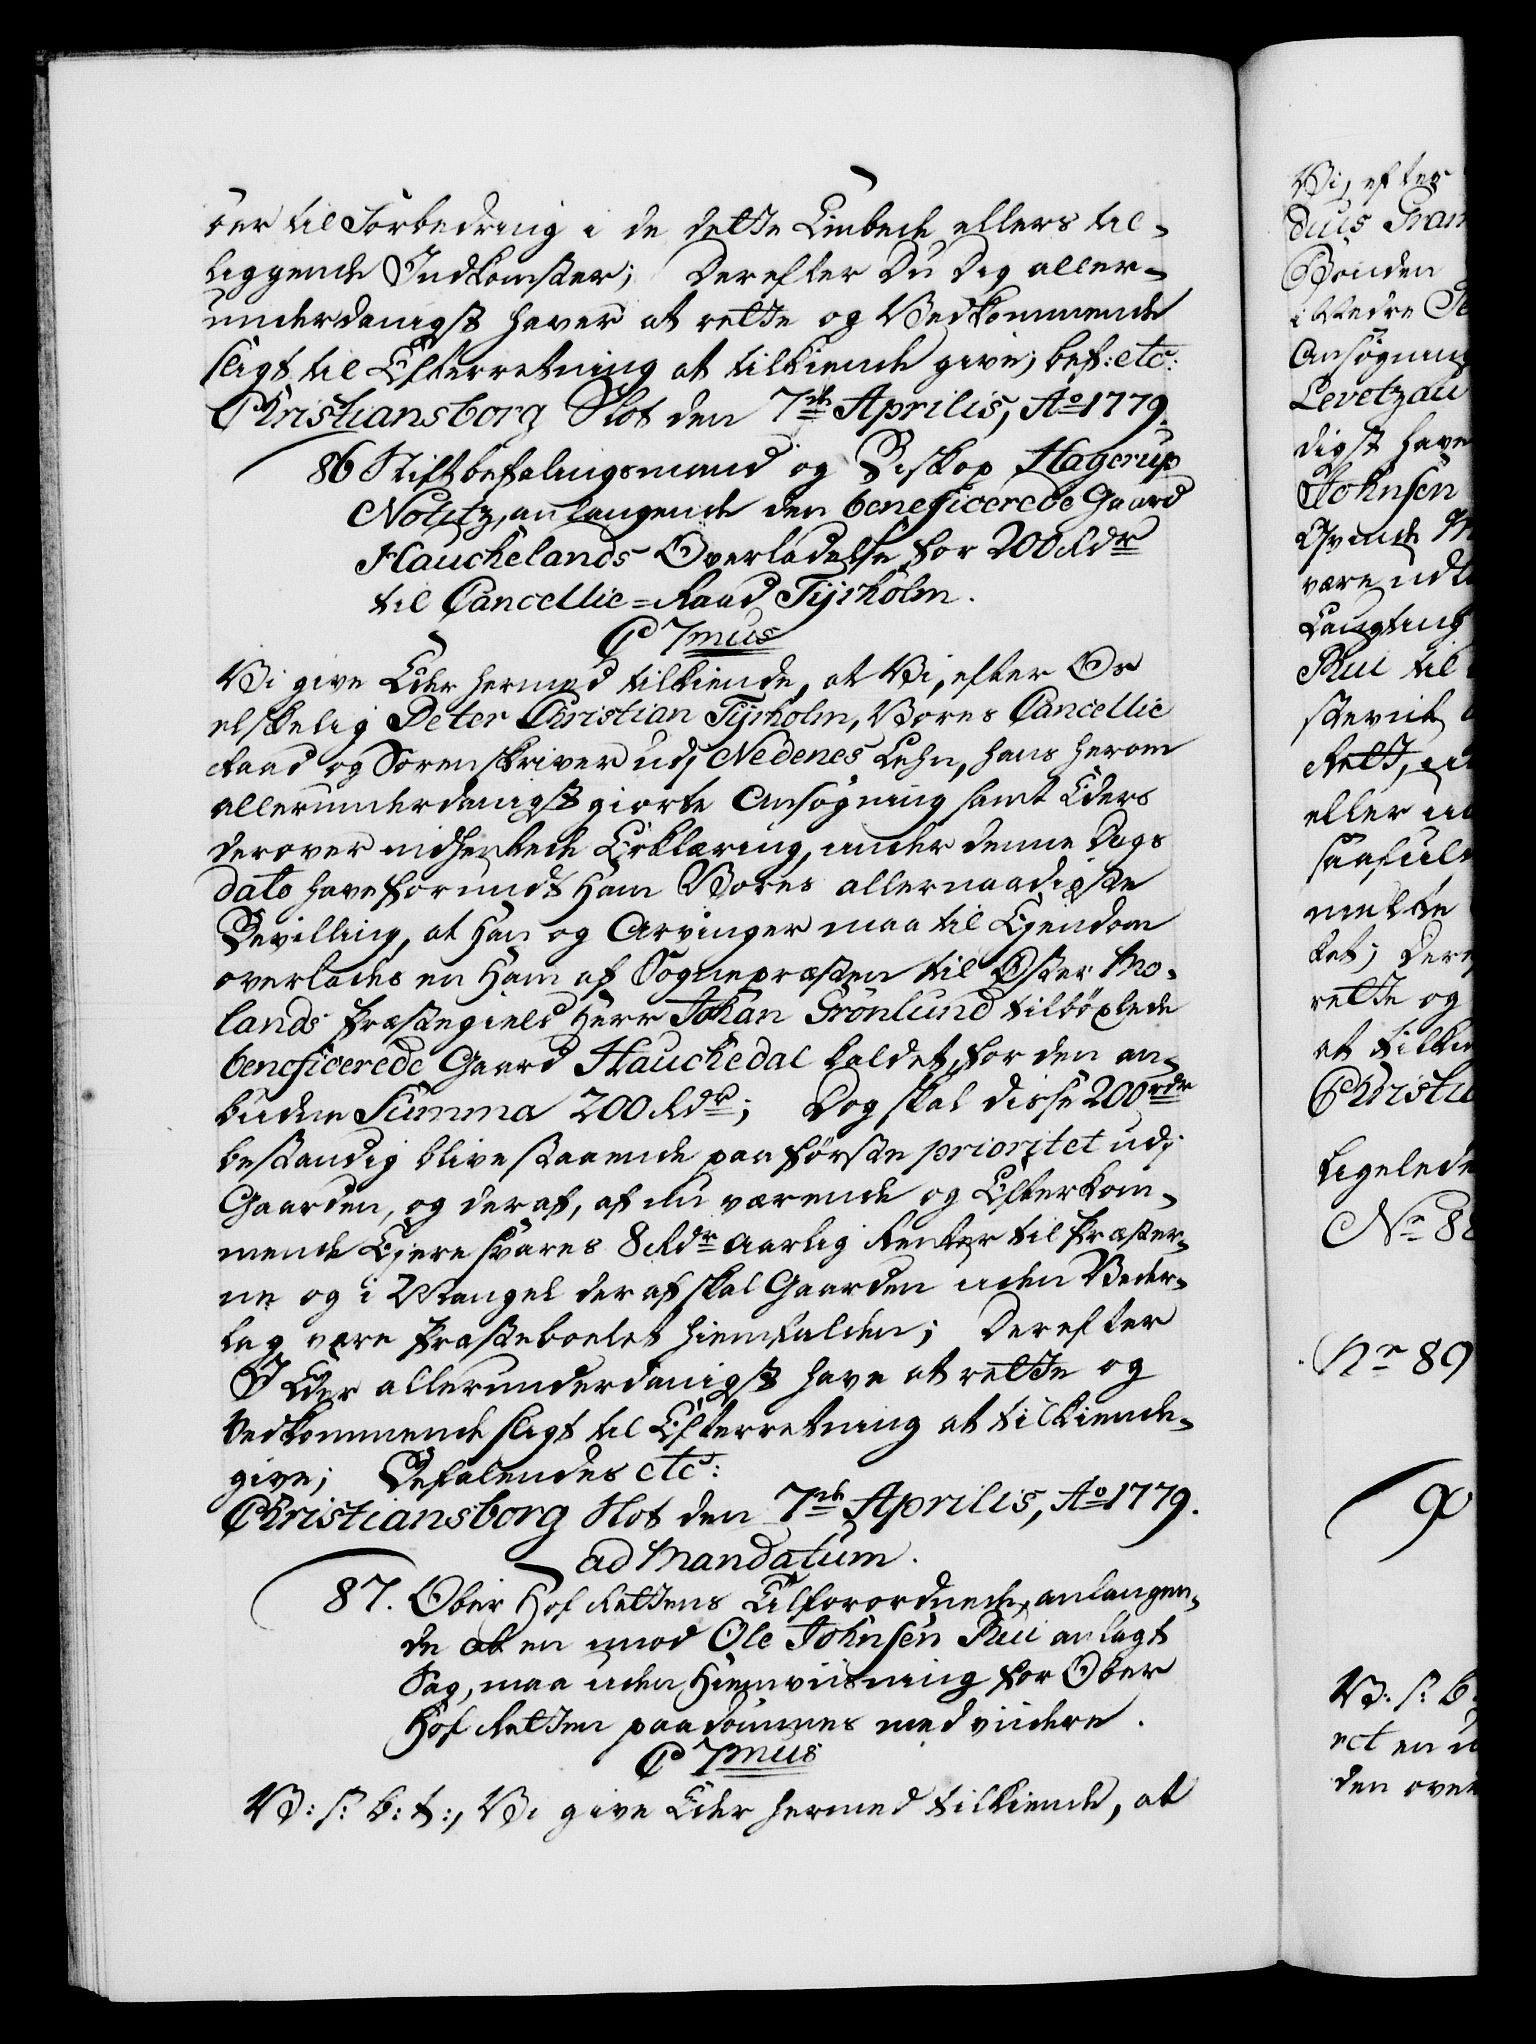 öer til Forbedring i de dette Embede ellers til-
liggende Indkomster; Derefter Du Dig aller-
underdanigst haver at rette og Vedkommende
sligt til Efterretning at tilkiende give; bef: etc:
Christiansborg Slot den 7de Aprilis, Ao 1779.
86 Stiftbefalingsmand og Biskop Hagerup
Notitz, anlangende den beneficerede Gaard
Hauchelands Overladelse for 200 Rdr
til Cancellie=Raad Tyrholm.
C 7mus
Vi give Eder hermed tilkiende, at Vi, efter Os
elskelig Peter Christian Tyrholm, Vores Cancellie
Raad og Sorenskriver udj Nedenes Lehn, hans herom
allerunderdanigst giorte Ansøgning samt Eders
derover indhentede Erklæring, under denne Dags
dato have forundt Ham Vores allernaadigste
Bevilling, at Han og Arvinger maa til Ejendom
overlades en Ham af Sognepræsten til Øster Mo-
lands Præstegield Herr Johan Grönlund tilbøxlede
beneficerede Gaard Hauchedal kaldet, for den an-
budne Summa 200 Rdr; Dog skal disse 200 rdr
bestandig blive staaende paa første prioritet udj
Gaarden, og deraf, af nu værende og Efterkom-
mende Ejere svares 8 Rdr aarlig Renter til Præster-
ne og i Mangel deraf skal Gaarden uden Veder-
lag være Præsteboelet hiemfalden; Derefter
I Eder allerunderdanigst have at rette og
Vedkommende sligt til Efterretning at tilkiende-
give; Befalendes etc:
Christiansborg Slot den 7de Aprilis, Ao 1779.
ad Mandatum.
87. Ober Hof Rettens Tilforordnede, anlangen-
de at en imod Ole Johnsen Rui anlagt
Sag, maa uden Hiemviisning for Ober
Hof Retten paadømmes med videre.
C 7mus
V: s: b: t:, Vi give Eder hermed tilkiende, at
Vi, efter
dus Gram
Bonden
i Nedre
Ansøgning
Levetzau
digst have
Johnsen
være udt
Laugting
Rui til
Rett,
eller
melte
tet; Der
rette og
at tilki
Christia
Ligelede
No 88
No 89
9
V: s: b:
ect en
den over